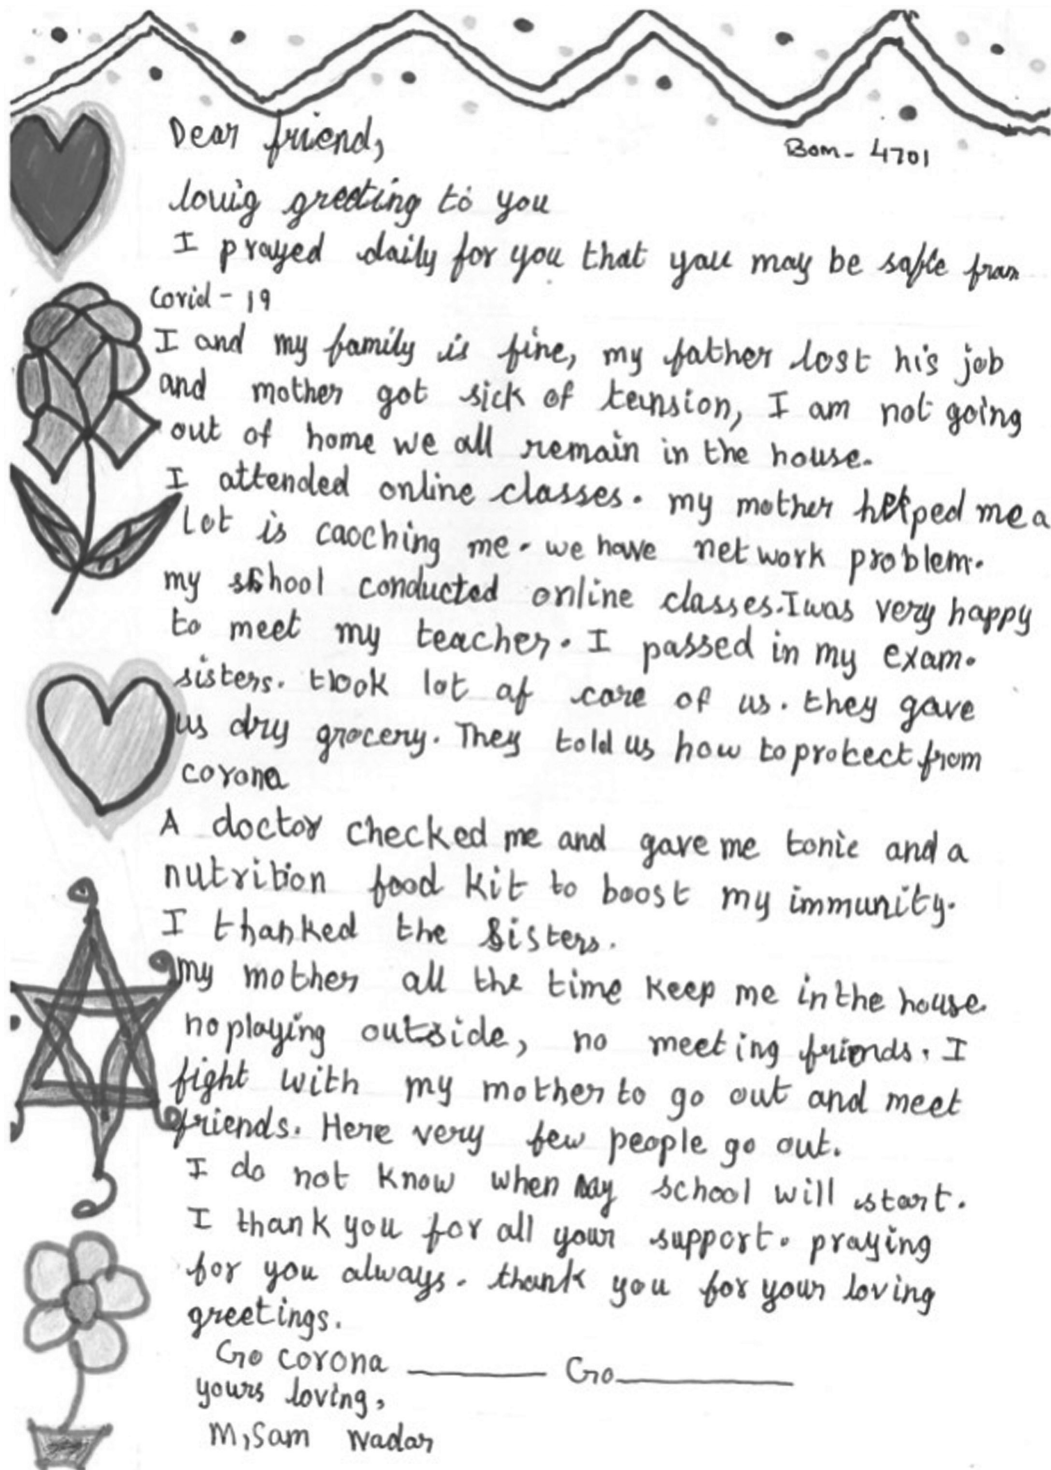 Dear friend,
Bom- 4701
louig greeting to you
I prayed daily for you that you may be safe fram
Covid - 19
I and my family is fine, my father lost his job
and mother got sick of teunsion, I am not going
out of home we all remain in the house.
I attended online classes. my mother helped me a
lot is caoching me. we have net work problem.
my school conducted online classes. I was very happy
to meet my teacher. I passed in my exam.
sisters. took lot of care of us. they gave
us dry grocery. They told us how to protect from
corona
A doctor checked me and gave me tonic and a
nutrition food kit to boost my immunity.
I thanked the Sisters.
my mother all the time keep me in the house.
no playing outside, no meeting friends. I
fight with my mother to go out and meet
friends. Here very few people go out.
I do not know when my school will start.
I thank you for all your support. praying
for you always. thank you for your loving
greetings.
Go corona ________ Go__________
yours loving,
M, Sam Nadar